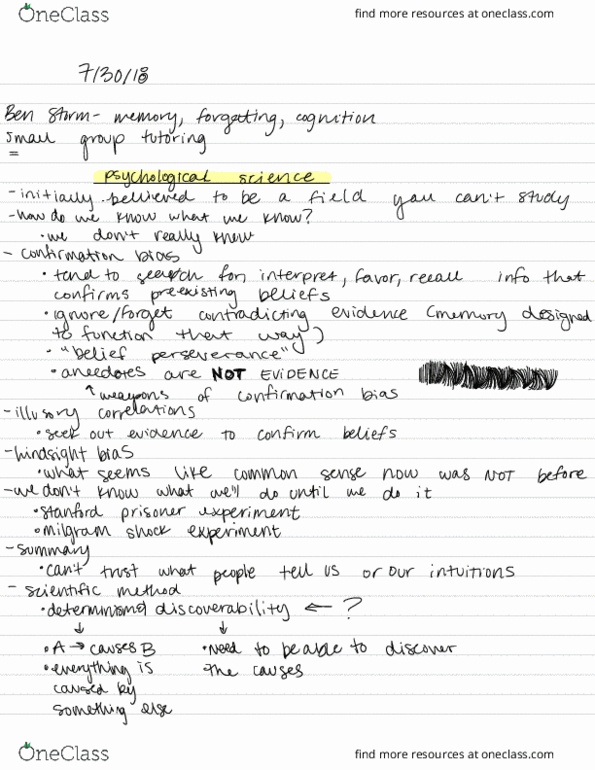 OneClass
find more resources at oneclass.com
7/30/18
Ben Storm- memory, forgetting, cognition
Small group tutoring
=
psychological science
-initially believed to be a field you can't study
-how do we know what we know?
•we don't really know
- confirmation bias
• tend to search for, interpret, favor, recall info that
confirms preexisting beliefs
• ignore/forget contradicting evidence (memory designed
to function that way)
• "belief perseverance"
• anecdotes are NOT EVIDENCE
↑weapons of confirmation bias
-illusory correlations
• seek out evidence to confirm beliefs
-hindsight bias
•what seems like common sense now was NOT before
-we don't know what we'll do until we do it
•Stanford prisoner experiment
•milgram shock experiment
-summary
•can't trust what people tell us or our intuitions
- scientific method
•determinism & discoverability ← ?
↓ ↓
•A → causes B •need to be able to discover
•everything is the causes
caused by
something else
OneClass
find more resources at oneclass.com